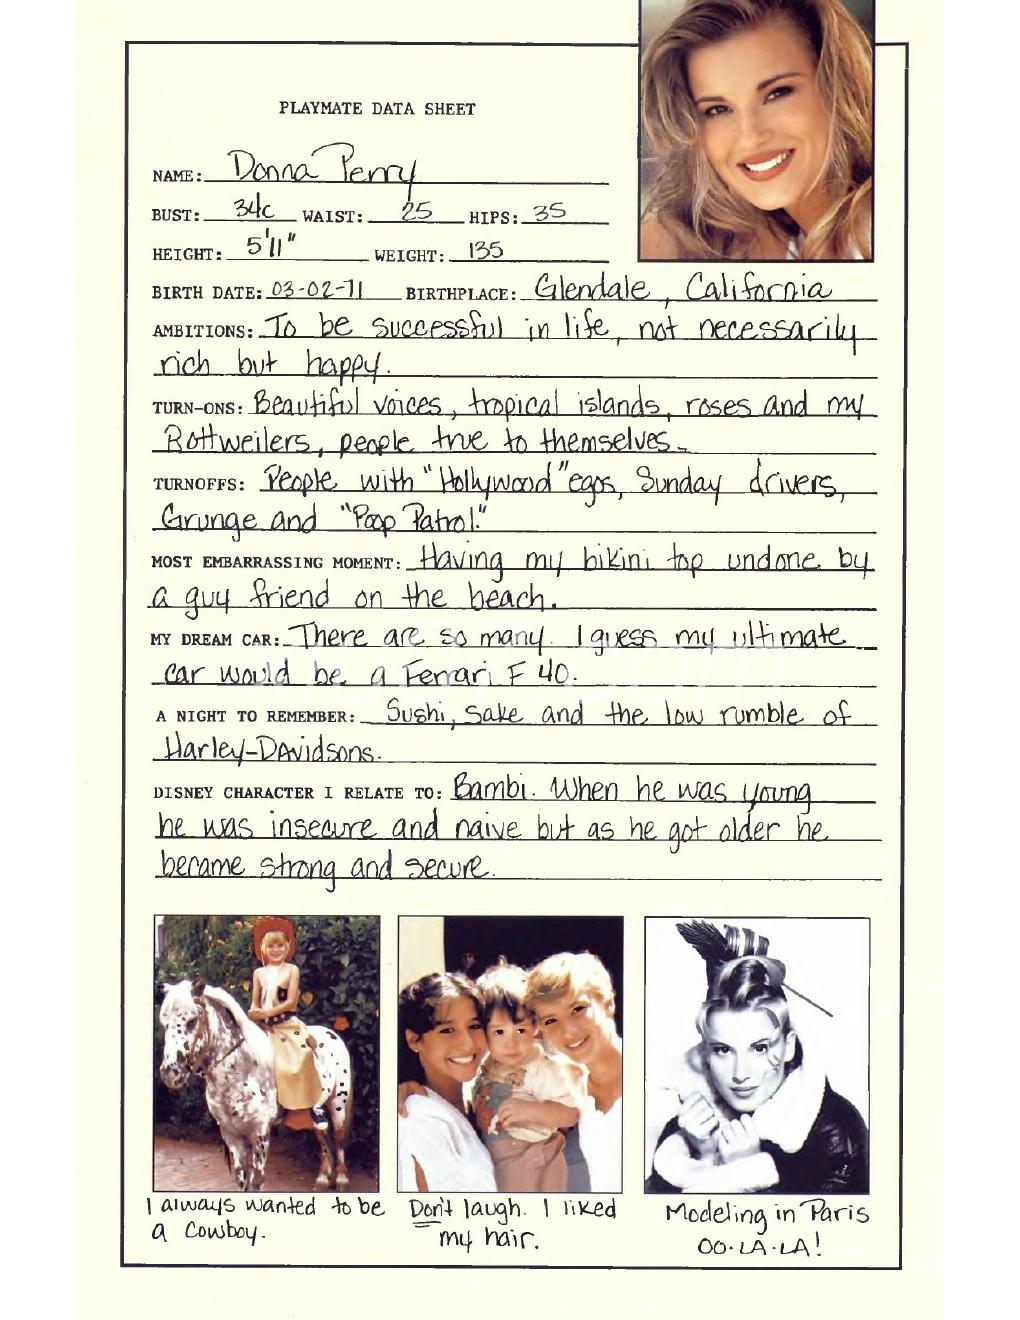 PLAYMATE DATA SHEET
NAME: Donna Perry
BUST: 34c WAIST: 25 HIPS: 35
HEIGHT: 5'11" WEIGHT: 135
BIRTH DATE: 03-02-71 BIRTHPLACE: Glendale, California
AMBITIONS: To be successful in life, not necessarily
rich but happy.
TURN-ONS: Beautiful voices, tropical islands, roses and my
Rottweilers, people true to themselves.
TURNOFFS: People with "Hollywood" egos, Sunday drivers,
Grunge and "Poop Patrol."
MOST EMBARRASSING MOMENT: Having my bikini top undone by
a guy friend on the beach.
MY DREAM CAR: There are so many. I guess my ultimate
car would be a Ferrari F 40.
A NIGHT TO REMEMBER: Sushi, sake and the low rumble of
Harley-Davidsons.
DISNEY CHARACTER I RELATE TO: Bambi. When he was young
he was insecure and naive but as he got older he
became strong and secure.
I always wanted to be
a Cowboy.
Don't laugh. I liked
my hair.
Modeling in Paris
OO-LA-LA!